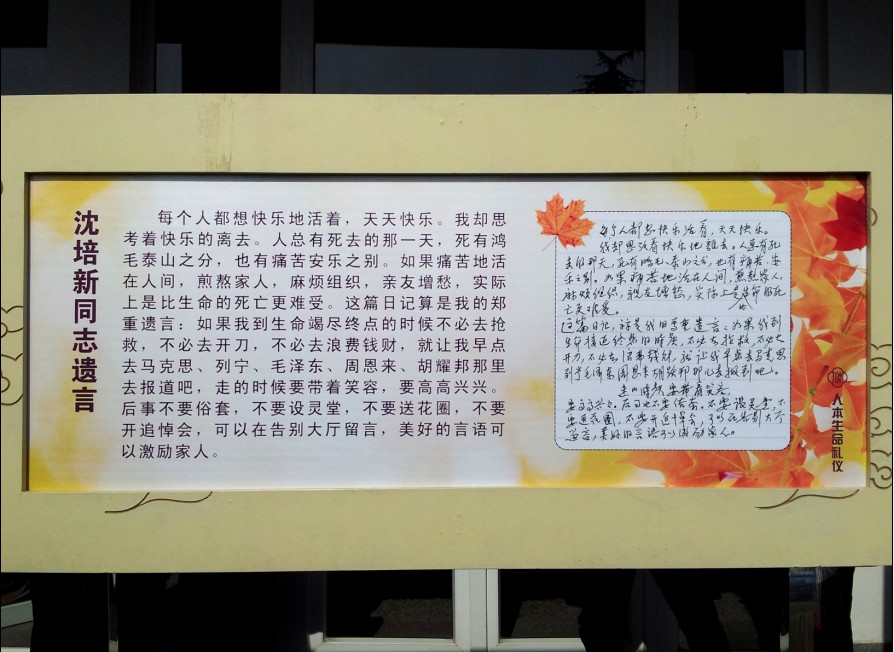 沈培新同志遗言
每个人都想快乐地活着，天天快乐。我却思
考着快乐的离去。人总有死去的那一天，死有鸿
毛泰山之分，也有痛苦安乐之别。如果痛苦地活
在人间，煎熬家人，麻烦组织，亲友增愁，实际
上是比生命的死亡更难受。这篇日记算是我的郑
重遗言：如果我到生命竭尽终点的时候不必去抢
救，不必去开刀，不必去浪费钱财，就让我早点
去马克思、列宁、毛泽东、周恩来、胡耀邦那里
去报道吧，走的时候要带着笑容，要高高兴兴。
后事不要俗套，不要设灵堂，不要送花圈，不要
开追悼会，可以在告别大厅留言，美好的言语可
以激励家人。
每个人都想快乐活着，天天快乐。
我却思考着快乐地离去。人总有死
去的那天，死有鸿毛泰山之分，也有痛苦、安
乐之别。如果痛苦地活在人间，煎熬家人，
麻烦组织，亲友增愁，实际上是比生命的死
亡更难受。
这篇日记，算是我的郑重遗言：如果我到
开刀，不必去浪费钱财，就让我早点去马克思
走的时候要带着笑容
遗言，美好的言语可以激励家人。
人本生命礼仪